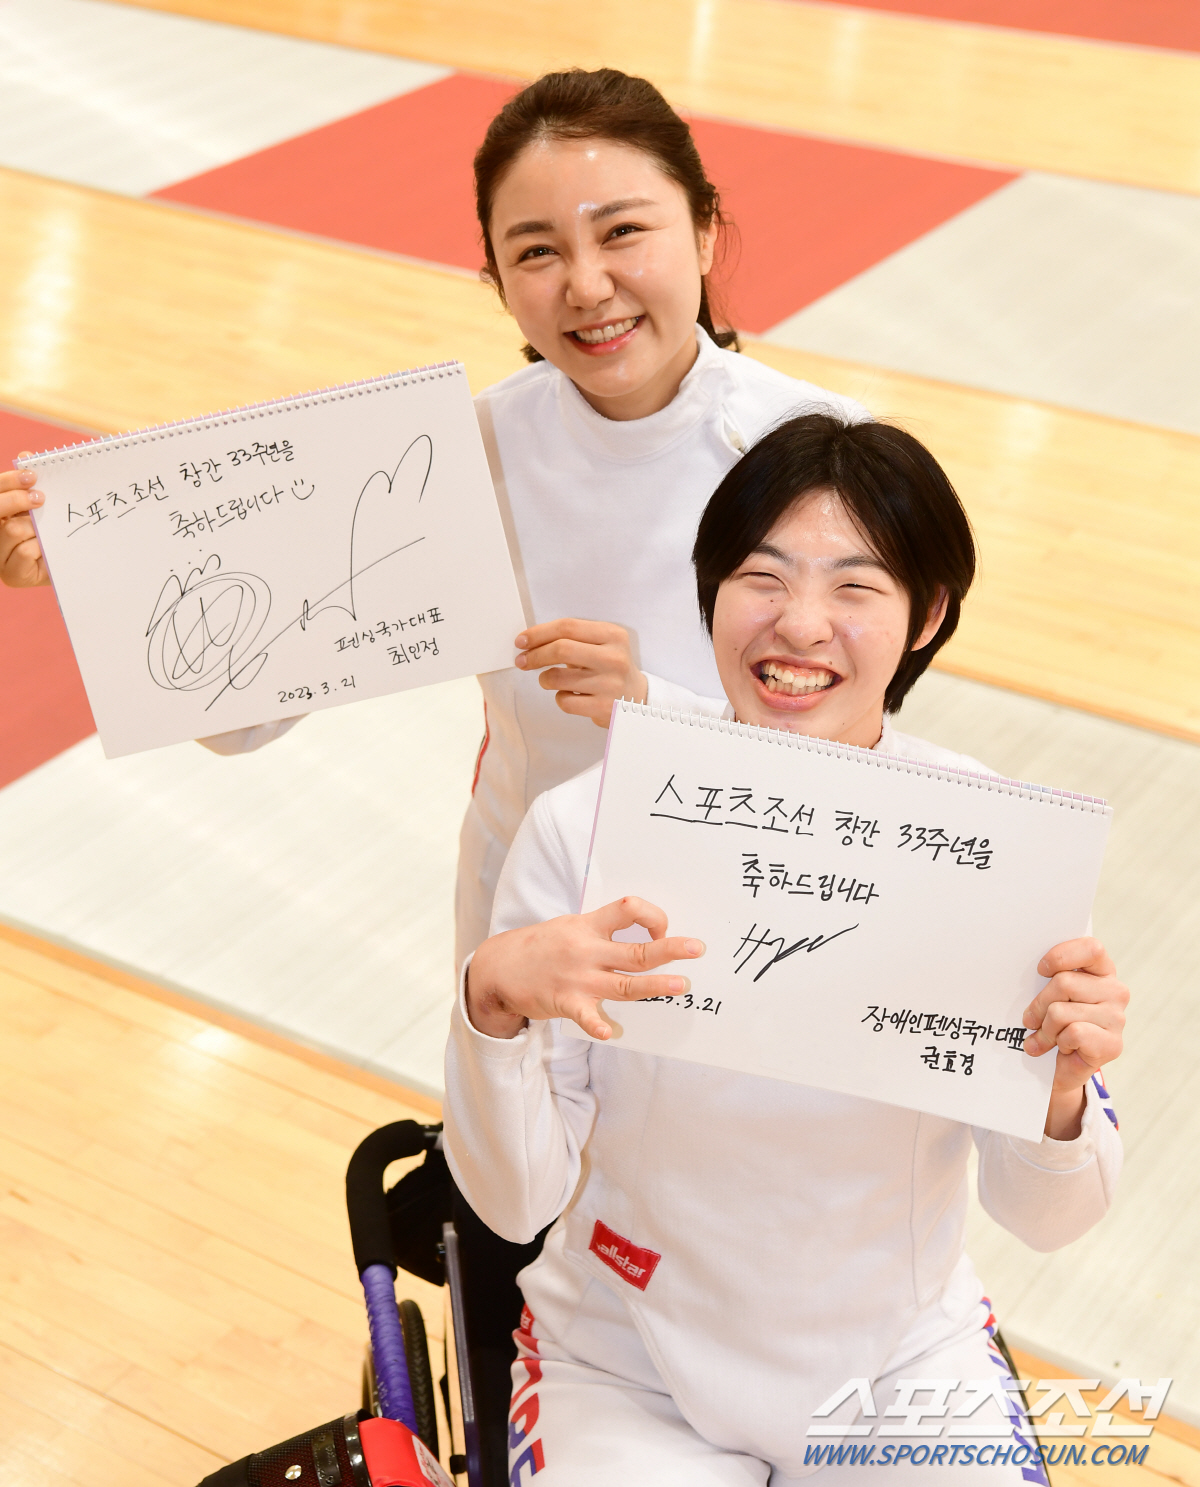 스포츠조선 창간 33주년을
축하드립니다
펜싱국가대표
최인정
2023.3.21
스포츠조선 창간 33주년을
축하드립니다
.3.21
장애인펜싱국가대표
권효경
allstar
스포츠조선
WWW.SPORTSCHOSUN.COM